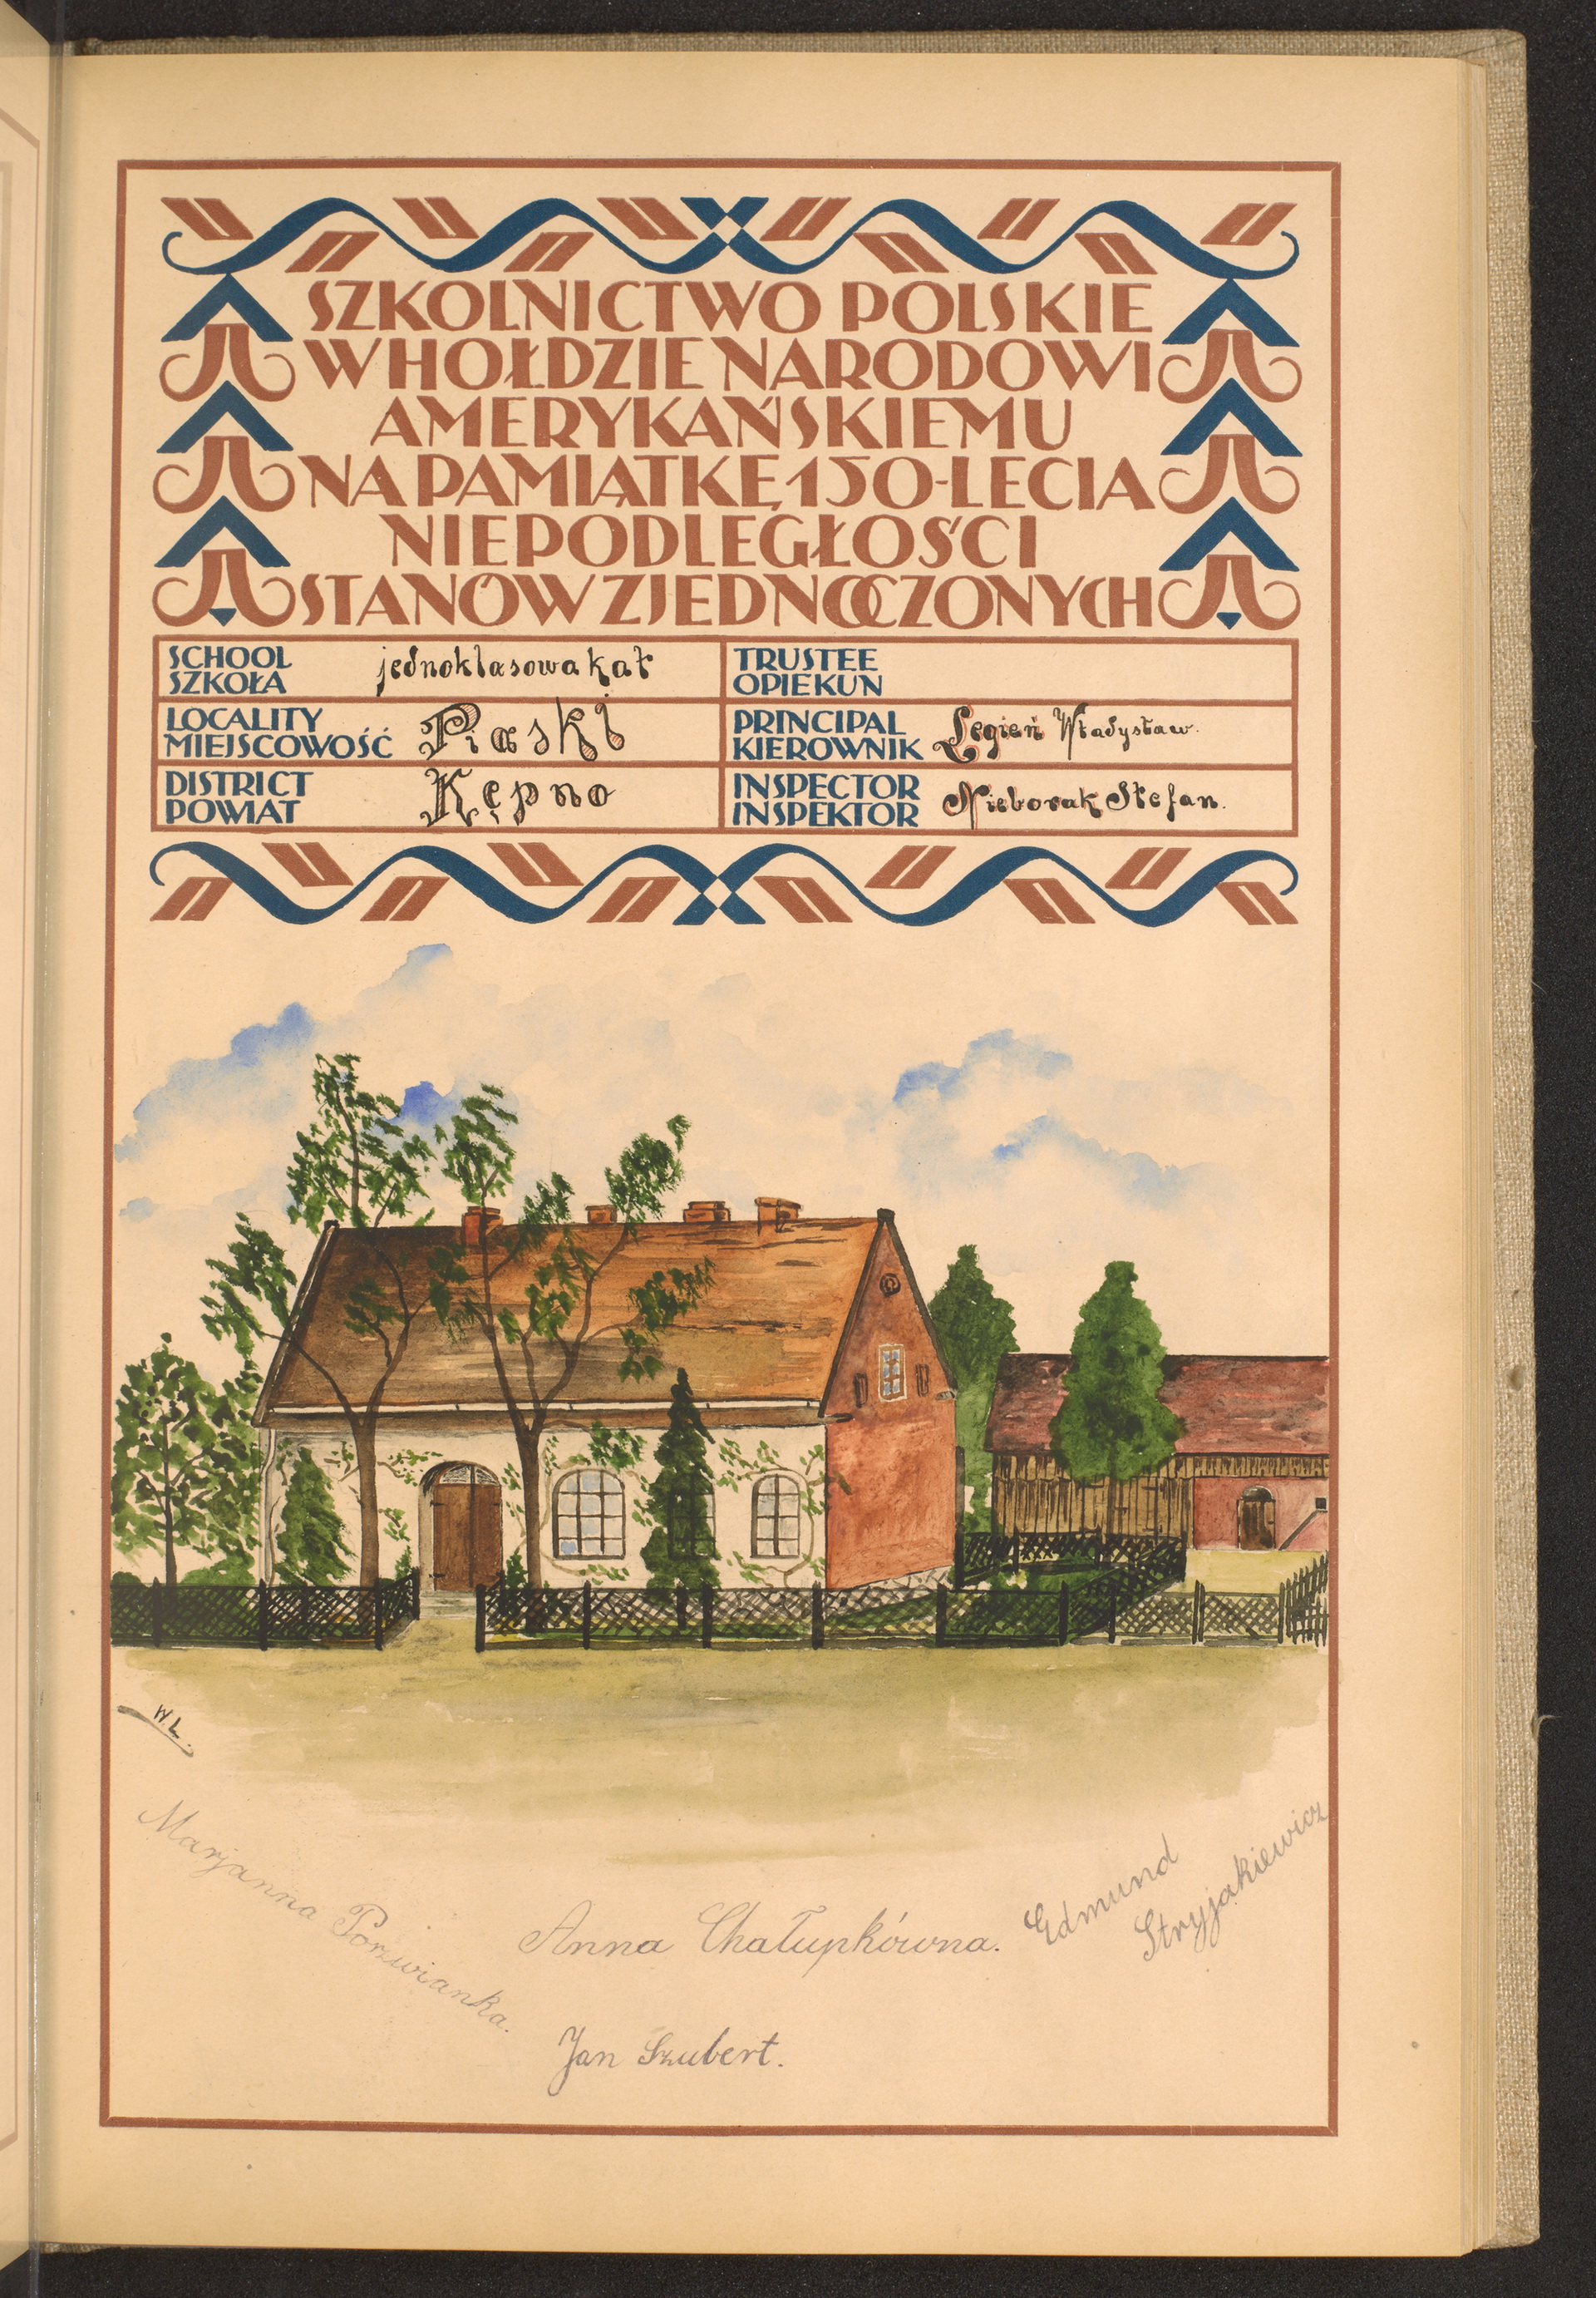 SZKOLNICTWO POLSKIE
W HOŁDZIE NARODOWI
AMERYKAŃSKIEMU
NA PAMIĄTKĘ 150-LECIA
NIEPODLEGŁOŚCI
STANÓW ZJEDNOCZONYCH
SCHOOL
SZKOŁA
jednoklasowa kat
TRUSTEE
OPIEKUN
LOCALITY
MIEJSCOWOŚĆ
Piaski
PRINCIPAL
KIEROWNIK
Legień Władysław.
DISTRICT
POWIAT
Kępno
INSPECTOR
INSPEKTOR
Nieborak Stefan.
W L.
Marjanna Porwianka.
Anna Chałupkówna.
Edmund
Stryjakiewicz
Jan Szubert.